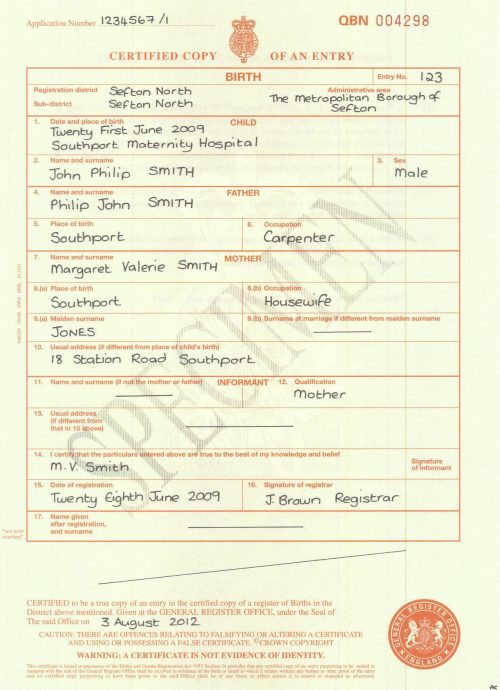 Application Number 1234567/1
QBN 004298
CERTIFIED COPY OF AN ENTRY
BIRTH
Entry No. 123
Registration district Sefton North
Sub-district Sefton North
Administrative area
The Metropolitan Borough of
Sefton
1. Date and place of birth CHILD
Twenty First June 2009
Southport Maternity Hospital
2. Name and surname
John Philip SMITH
3. Sex
Male
4. Name and surname FATHER
Philip John SMITH
5. Place of birth
Southport
6. Occupation
Carpenter
7. Name and surname MOTHER
Margaret Valerie SMITH
8.(a) Place of birth
Southport
8.(b) Occupation
Housewife
9.(a) Maiden surname
JONES
9.(b) Surname at marriage if different from maiden surname
10. Usual address (if different from place of child's birth)
18 Station Road Southport
11. Name and surname (if not the mother or father) INFORMANT
12. Qualification
Mother
13. Usual address
(if different from
that in 10 above)
14. I certify that the particulars entered above are true to the best of my knowledge and belief
M.V. Smith
Signature
of informant
15. Date of registration
Twenty Eighth June 2009
16. Signature of registrar
J. Brown Registrar
17. Name given
after registration,
and surname
*see note
overleaf
SPECIMEN
CERTIFIED to be a true copy of an entry in the certified copy of a register of Births in the
District above mentioned. Given at the GENERAL REGISTER OFFICE, under the Seal of
The said Office on 3 August 2012
CAUTION: THERE ARE OFFENCES RELATING TO FALSIFYING OR ALTERING A CERTIFICATE
AND USING OR POSSESSING A FALSE CERTIFICATE. ©CROWN COPYRIGHT
WARNING: A CERTIFICATE IS NOT EVIDENCE OF IDENTITY.
This certificate is issued in pursuance of the Births and Deaths Registration Act 1953 Section 34 provides that any certified copy of an entry purporting to be sealed or
stamped with the seal of the General Register Office shall be received as evidence of the birth or death to which it relates without any further or other proof of the entry
and no certified copy purporting to have been given in the said Office shall be of any force or effect unless it is sealed or stamped as aforesaid.
GENERAL REGISTER OFFICE
ENGLAND